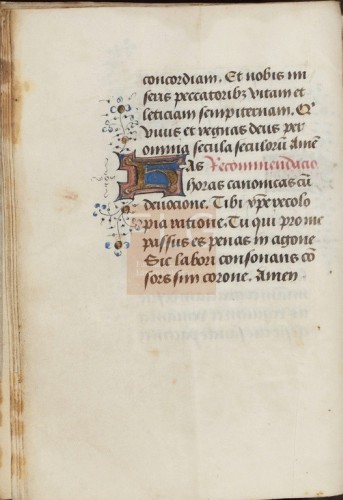 concordiam. Et nobis mi
seris peccatoribz vitam et
leticiam sempiternam. Q̄
viuis et regnas deus per
omnia secula seculorū amē
Has Recommendacio
horas canonicas cū
deuocione. Tibi xp̄e recolo
pia ratione. Tu qui pro me
passus es penas in agone
Sic labori consonans cō
sors sim corone. Amen